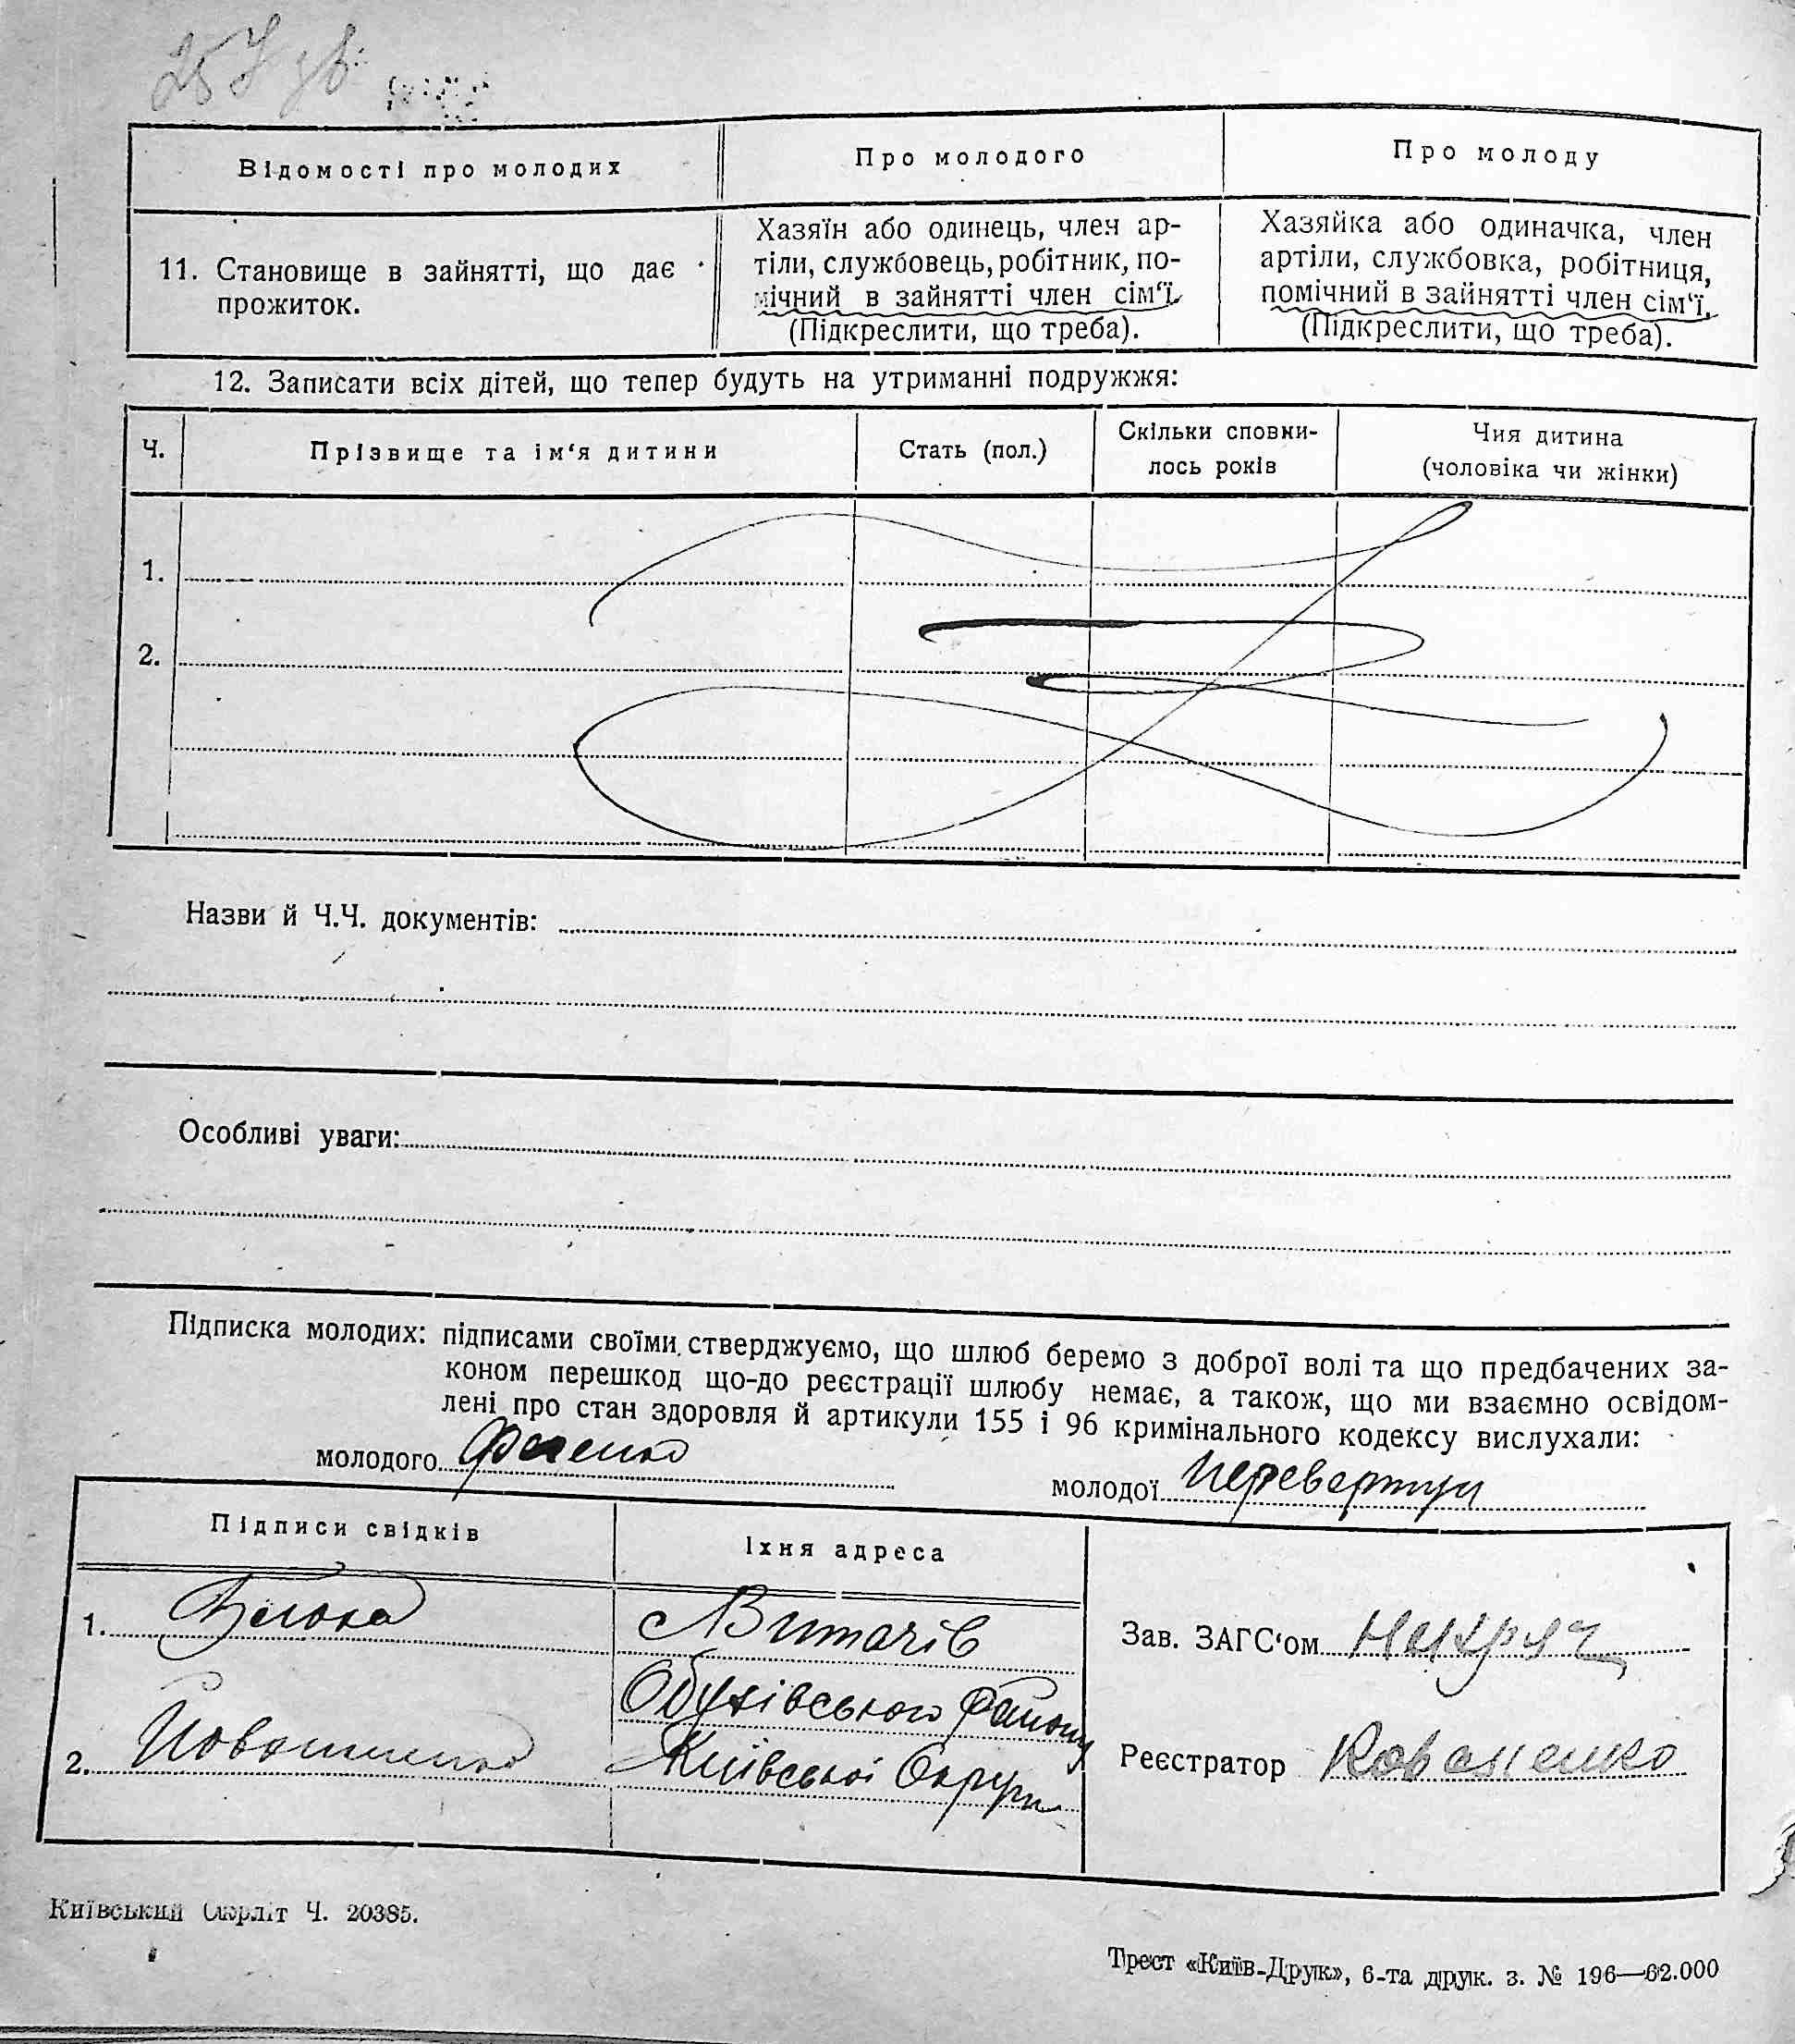 Відомості про молодих
Про молодого
Про молоду
11. Становище в зайнятті, що дає
прожиток.
Хазяїн або одинець, член ар-
тіли, службовець, робітник, по-
мічний в зайнятті член сім‘ї.
(Підкреслити, що треба).
Хазяйка або одиначка, член
артіли, службовка, робітниця,
помічний в зайнятті член сім‘ї.
(Підкреслити, що треба).
12. Записати всіх дітей, що тепер будуть на утриманні подружжя:
Ч.
Прізвище та ім‘я дитини
Стать (пол.)
Скільки сповни-
лось років
Чия дитина
(чоловіка чи жінки)
1.
2.
Назви й Ч.Ч. документів:
Особливі уваги:
Підписка молодих: підписами своїми стверджуємо, що шлюб беремо з доброї волі та що предбачених за-
коном перешкод що-до реєстрації шлюбу немає, а також, що ми взаємно освідом-
лені про стан здоровля й артикули 155 і 96 кримінального кодексу вислухали:
молодого
молодої Перевертун
Підписи свідків
Їхня адреса
1.
с Витачів
Обухівського району
Київської Округи
2.
Зав. ЗАГС‘ом
Реєстратор Коваленко
Київський Окрліт Ч. 20385.
Трест «Київ-Друк», 6-та друк. з. № 196—62.000